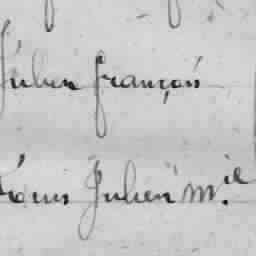 Julien françois
Louis Julien M.ie